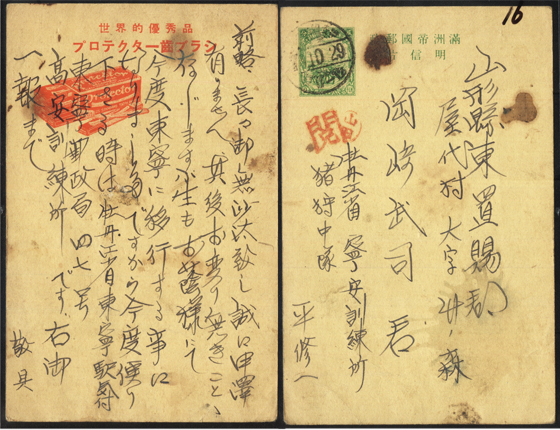 世界的優秀品
プロテクター齒ブラシ
前略、長々御無沙汰致し誠に申譯
有りません、其後お変り無きことゝ
存じますが生もお蔭様にて
今度東寧に移行する事に
なりました。ですから今度便り
下さる時は牡丹江省東寧駅前
東寧郵政局四七号
高安訓練所です、右御
一報まで
敬具
16
滿洲帝國郵
明信
10.29
閲
山形縣東置賜郡
屋代村大字
岡崎武司君
牡丹江省寧安訓練所
猪狩中隊
平修一